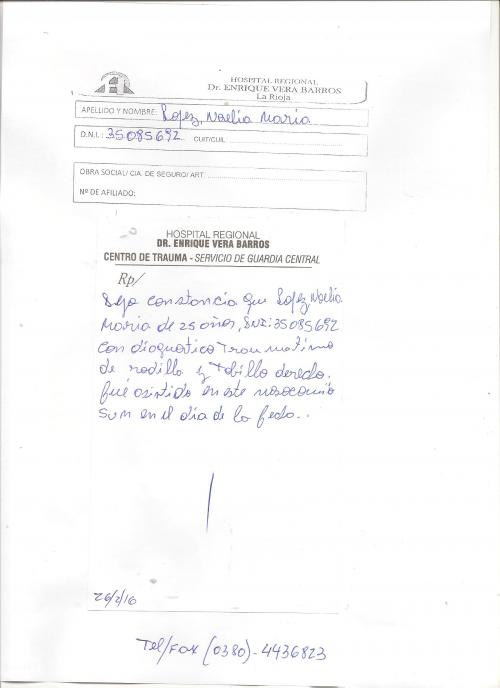 HOSPITAL REGIONAL
Dr. ENRIQUE VERA BARROS
La Rioja
APELLIDO Y NOMBRE: Lopez, Noelia Maria
D.N.I.: 35085692 CUIT/CUIL
OBRA SOCIAL/ CIA. DE SEGURO/ ART
Nº DE AFILIADO:
HOSPITAL REGIONAL
DR. ENRIQUE VERA BARROS
CENTRO DE TRAUMA - SERVICIO DE GUARDIA CENTRAL
Rp/
Dejo constancia que Lopez Noelia
Maria de 25 años, DNI: 35085692
con diagnostico Traumatismo
de rodilla y Tobillo derecho.
fué asistido en este nosocomio
SUM en el día de la fecha..
26/2/16
Tel/FAX (0380)-4436823